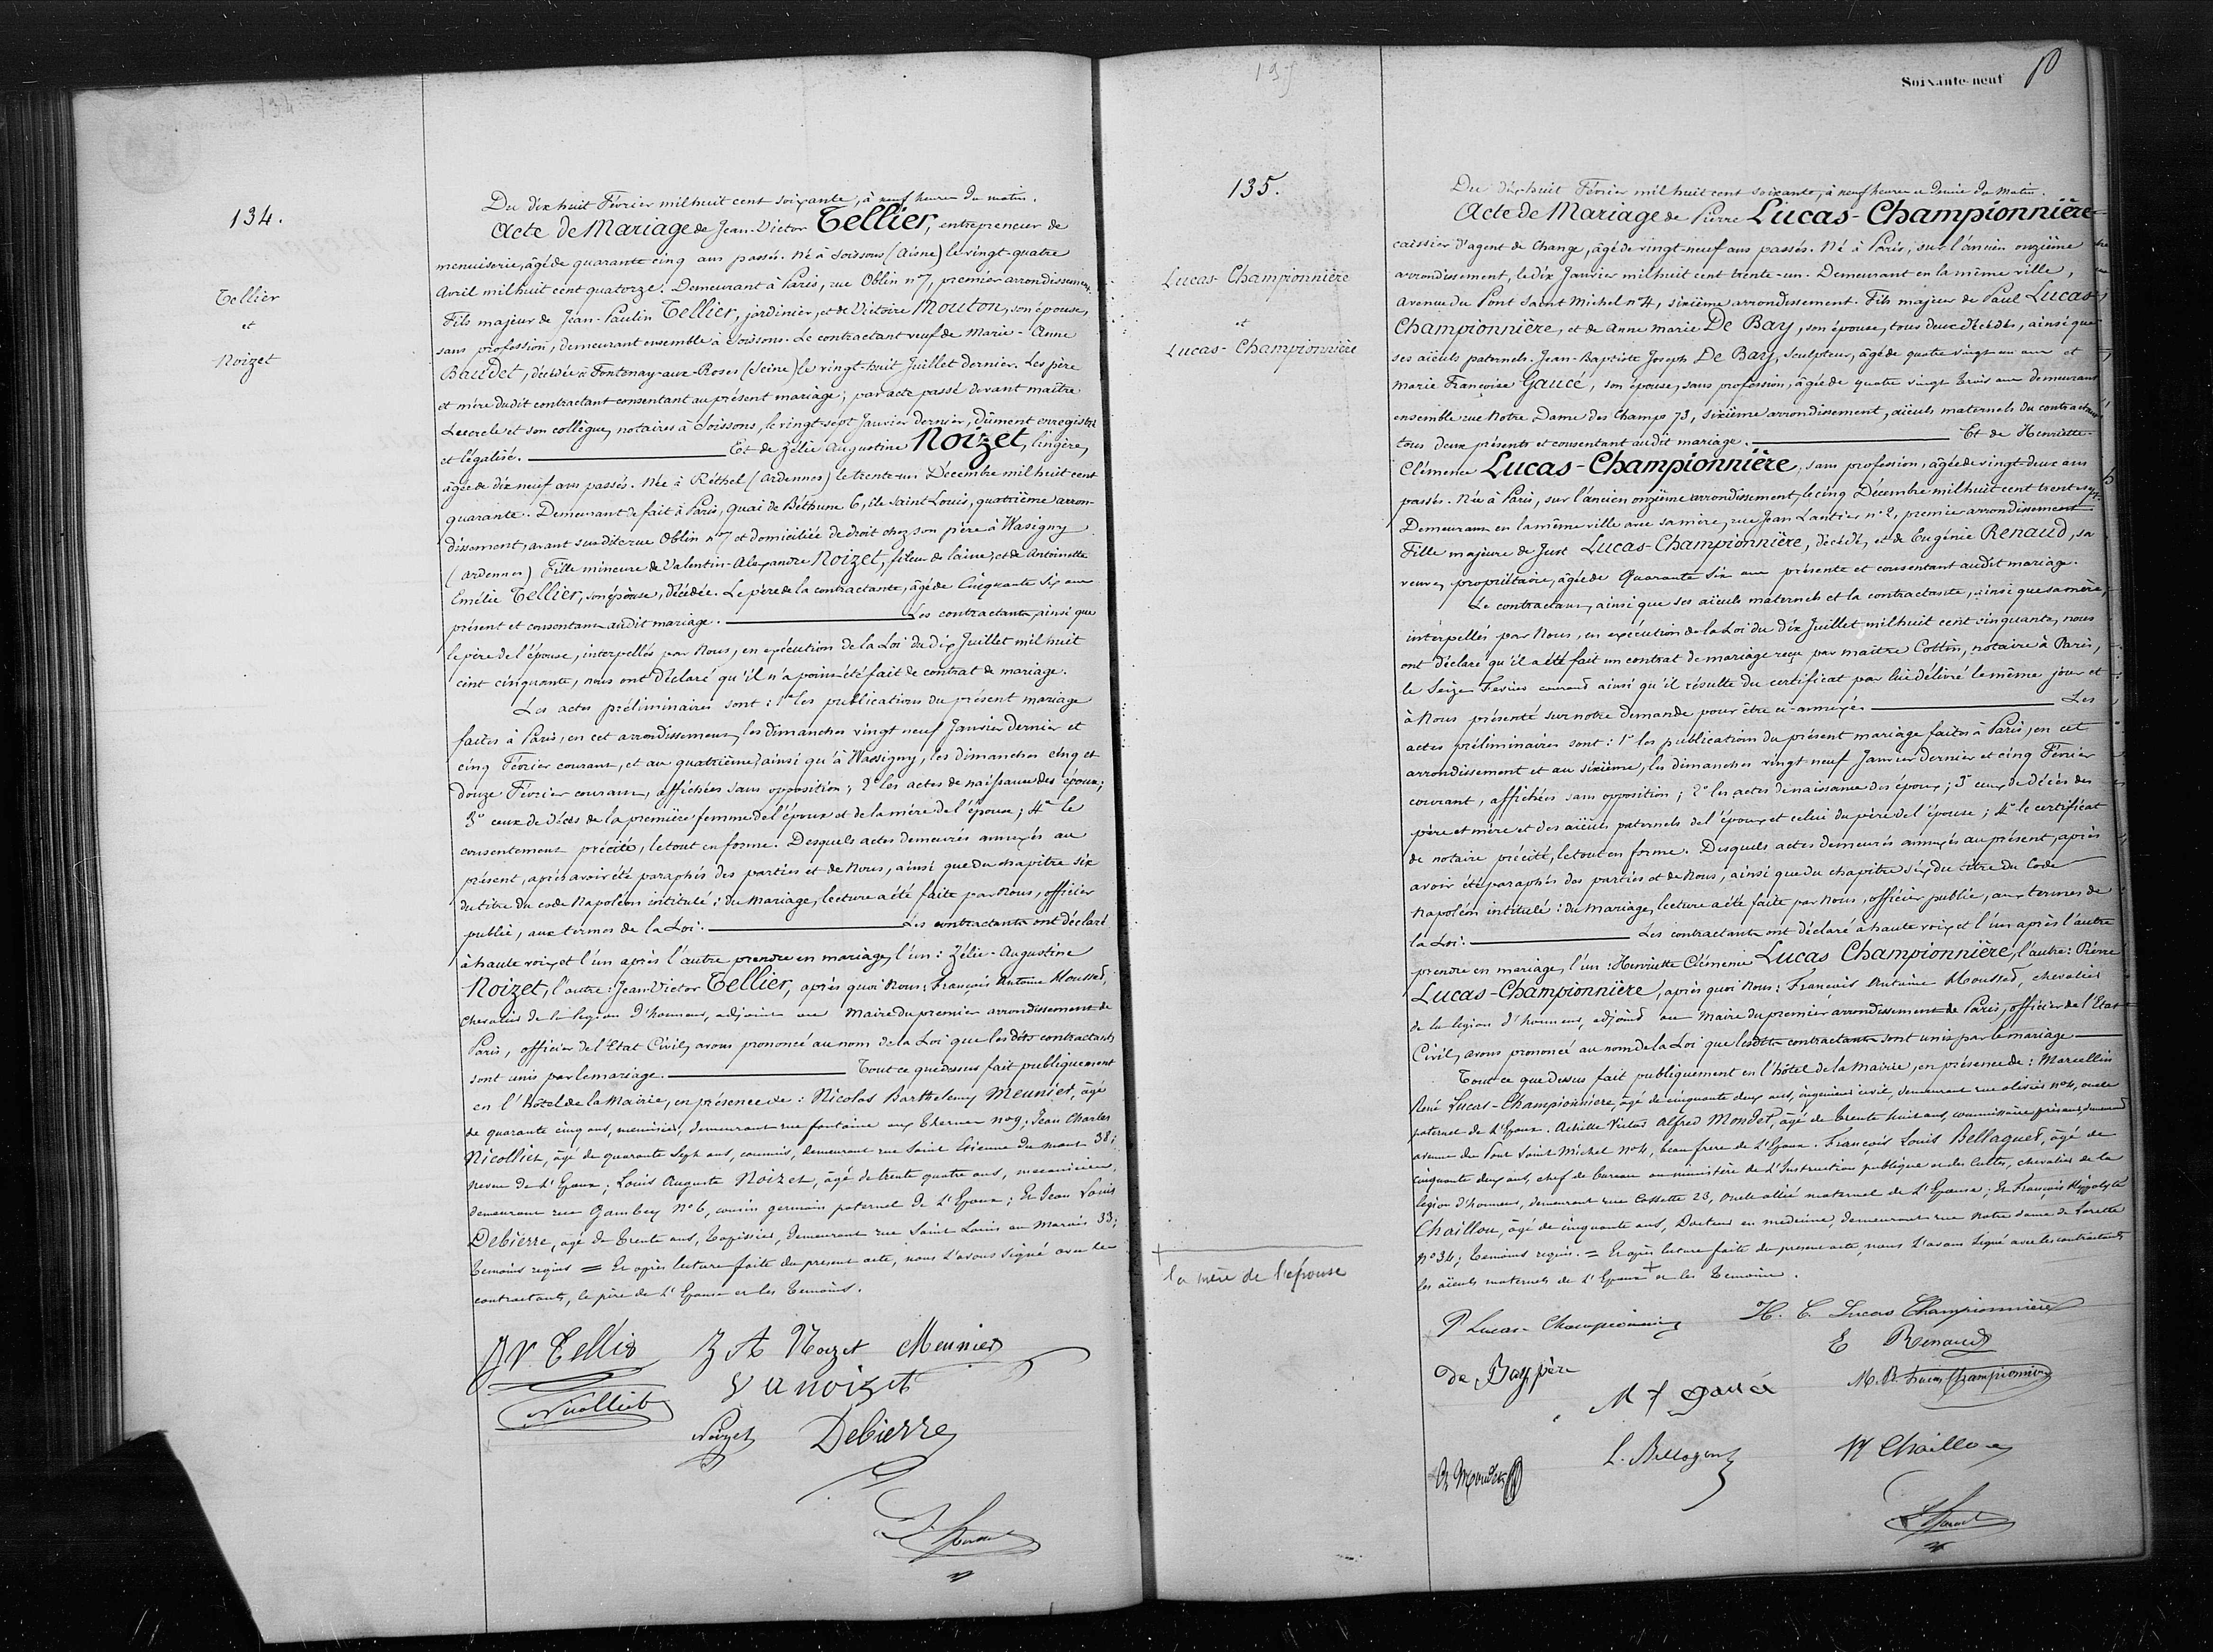 134.
Tellier
et
Noizet
Du dix huit Février mil huit cent soixante, à neuf heures du matin.
Acte de Mariage de Jean-Victor Tellier, entrepreneur de
menuiserie, âgé de quarante cinq ans passés. Né à Soissons (Aisne) le vingt-quatre
Avril mil huit cent quatorze. Demeurant à Paris, rue Oblin n° 7, premier arrondissement.
Fils majeur de Jean-Paulin Tellier, jardinier, et de Victoire Mouton, son épouse,
sans profession, demeurant ensemble à Soissons. Le contractant veuf de Marie-Anne
Baudet, décédée à Fontenay-aux-Roses (Seine) le vingt-huit Juillet dernier. Les père
et mère dudit contractant consentant au présent mariage, par acte passé devant maître
Lecercle et son collègue, notaires à Soissons, le vingt-sept Janvier dernier, dûment enregistré
et légalisé. Et de Zélie Augustine Noizet, lingère,
âgée de dix neuf ans passés. Née à Réthel (Ardennes) le trente-un Décembre mil huit cent
quarante. Demeurant de fait à Paris, quai de Béthune 6, île Saint Louis, quatrième arron-
dissement, avant susdite rue Oblin n° 7 et domiciliée de droit chez son père à Wasigny
(Ardennes) Fille mineure de Valentin-Alexandre Noizet, fileur de laine, et de Antoinette
Emélie Tellier, son épouse, décédée. Le père de la contractante, âgé de Cinquante Six ans
présent et consentant audit mariage. Les contractants, ainsi que
le père de l'épouse, interpellés par Nous, en exécution de la Loi du dix Juillet mil huit
cent cinquante, nous ont déclaré qu'il n'a point été fait de contrat de mariage.
Les actes préliminaires sont : 1° les publications du présent mariage
faites à Paris, en cet arrondissement, les dimanches vingt neuf Janvier dernier et
cinq Février courant, et au quatrième, ainsi qu'à Wassigny, les dimanches cinq et
douze Février courant, affichées sans opposition ; 2° les actes de naissance des époux ;
3° ceux de décès de la première femme de l'époux et de la mère de l'épouse ; 4° le
consentement précité, le tout en forme. Desquels actes demeurés annexés au
présent, après avoir été paraphés des parties et de Nous, ainsi que du chapitre six
du titre du code Napoléon intitulé : du Mariage, lecture a été faite par Nous, officier
public, aux termes de la Loi. Les contractants ont déclaré
à haute voix et l'un après l'autre prendre en mariage, l'un : Zélie-Augustine
Noizet, l'autre : Jean-Victor Tellier, après quoi Nous : François Antoine Moussed,
Chevalier de la legion d'honneur, adjoint au Maire du premier arrondissement de
Paris, officier de l'Etat Civil, avons prononcé au nom de la Loi que les dits contractants
sont unis par le mariage. Tout ce que dessus fait publiquement
en l'hôtel de la Mairie, en présence de : Nicolas Barthelemy Meunier, âgé
de quarante cinq ans, menuisier, demeurant rue fontaine aux Ternes no 9; Jean Charles
Nicolliet, âgé de quarante sept ans, commis, demeurant rue Saint Etienne du mont 38;
neveu de l'Epoux ; Louis Auguste Noizet, âgé de trente quatre ans, mecanicien,
demeurant rue Gambey N° 6, cousin germain paternel de l'Epouse ; Et Jean Louis
Debierre, agé de Trente ans, Tapissier, demeurant rue Saint Louis au Marais 33;
Temoins requis = Et après lecture faite du present acte, nous l'avons signé avec les
contractants, le père de l'Epouse et les Temoins.
J V Tellier Z A Noizet Meunier
Nicolliet V A noizet
Noizet Debierre
135.
Lucas-Championnière
et
Lucas-Championnière
+
la mère de l'épouse
Soixante-neuf
Du dix-huit Février mil huit cent soixante, à neuf heures et demie du Matin.
Acte de Mariage de Pierre Lucas-Championnière
caissier d'agent de Change, âgé de vingt-neuf ans passés. Né à Paris, sur l'ancien onzième
arrondissement, le dix Janvier mil huit cent trente-un. Demeurant en la même ville,
avenue du Pont Saint Michel n° 4, sixième arrondissement. Fils majeur de Paul Lucas-
Championnière, et de Anne Marie De Bay, son épouse, tous deux décédés, ainsi que
ses aïeuls paternels. Jean-Baptiste Joseph De Bay, Sculpteur, âgé de quatre vingt-un ans et
Marie Françoise Gaucé, son épouse, sans profession, âgée de quatre vingt trois ans demeurant
ensemble rue Notre Dame des Champs 73, sixième arrondissement, aïeuls maternels du contractant
tous deux présents et consentant audit mariage. Et de Henriette-
Clémence Lucas-Championnière, sans profession, âgée de vingt-deux ans
passés. Née à Paris, sur l'ancien onzième arrondissement, le cinq Décembre mil huit cent trente-sept
Demeurant en la même ville avec sa mère, rue Jean Lantier n° 2, premier arrondissement
Fille majeure de Just Lucas-Championnière, décédé, et de Eugénie Renaud, sa
veuve, propriétaire, âgée de Quarante Six ans présente et consentant audit mariage.
Le contractant, ainsi que ses aïeuls maternels et la contractante, ainsi que sa mère,
interpellés par Nous, en exécution de la Loi du dix Juillet mil huit cent cinquante, nous
ont déclaré qu'il a été fait un contrat de mariage reçu par maître Cottin, notaire à Paris,
le Seize Fevrier courant ainsi qu'il résulte du certificat par lui délivré le même jour et
à Nous présenté sur notre demande pour être ci-annexé. Les
actes préliminaires sont : 1° les publications du présent mariage faites à Paris, en cet
arrondissement et au sixième, les dimanches vingt neuf Janvier dernier et cinq Février
courant, affichées sans opposition ; 2° les actes de naissance des époux ; 3° ceux de décès des
père et mère et des aïeuls paternels de l'époux et celui du père de l'épouse ; 4° le certificat
de notaire précité, le tout en forme. Desquels actes demeurés annexés au présent, après
avoir été paraphés des parties et de Nous, ainsi que du chapitre six du titre du Code
Napoléon intitulé : du Mariage, lecture a été faite par Nous, officier public, aux termes de
la Loi. Les contractants ont déclaré à haute voix et l'un après l'autre
prendre en mariage, l'un : Henriette Clémence Lucas Championnière, l'autre : Pierre
Lucas-Championnière, après quoi Nous : François Antoine Moussed, chevalier
de la legion d'honneur, adjoint au Maire du premier arrondissement de Paris, officier de l'Etat
Civil, avons prononcé au nom de la Loi que lesdits contractants sont unis par le mariage
Tout ce que dessus fait publiquement en l'hôtel de la Mairie, en présence de : Marcellin
René Lucas-Championniere, âgé de cinquante deux ans, ingenieur civil, demeurant rue olivier n° 4, oncle
paternel de l'Epoux. Achille Victor Alfred Mondet, âgé de trente huit ans, commissaire priseur, demeurant
avenue du Pont Saint Michel n° 4, beau frere de l'Epoux. François Louis Bellaguet, âgé de
cinquante deux ans, chef de bureau au ministère de l'Instruction publique et des Cultes, chevalier de la
legion d'honneur, demeurant rue Cassette 23, oncle allié maternel de l'Epouse ; Et François Hippolyte
Chaillou, âgé de cinquante ans, Docteur en medecine, demeurant rue Notre dame de Lorette
n° 34 ; Temoins requis. = Et après lecture faite du present acte, nous l'avons signé avec les contractants
les aïeuls maternels de l'Epoux + et les Temoins.
P Lucas-Championnière H. C. Lucas Championnière
E Renaud
de Bay père M f gaucé M. R. Lucas Championnière
A Mondet L. Bellaguet H Chaillou